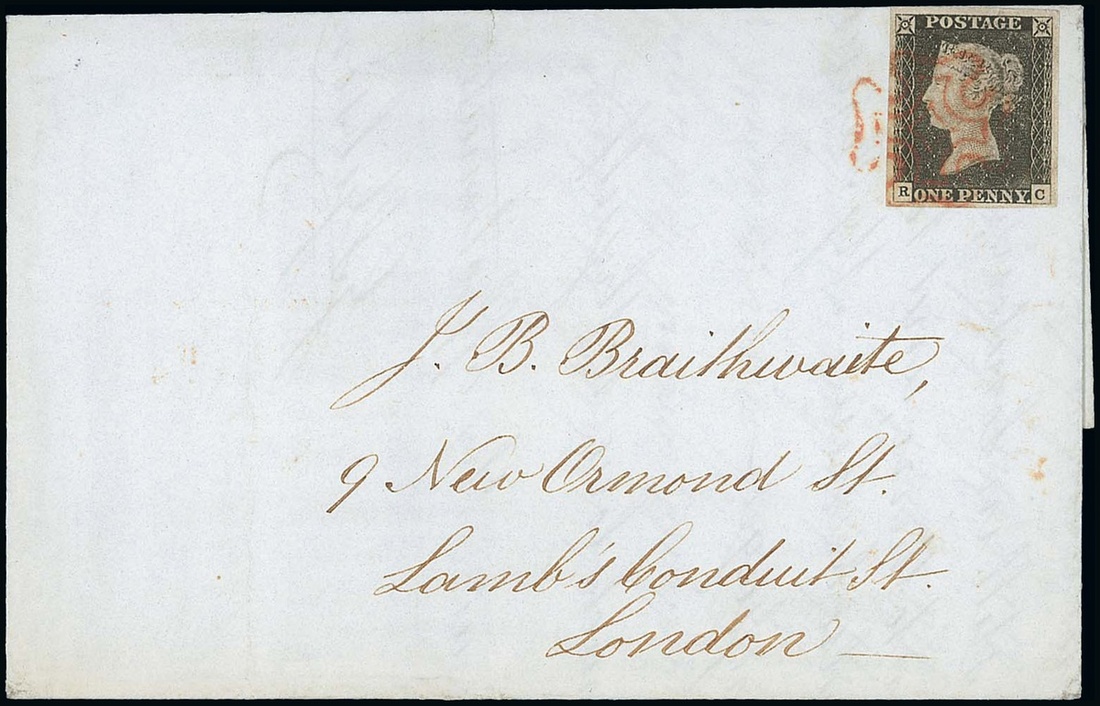 POSTAGE
R ONE PENNY. C
J. B. Braithwaite,
9 New Ormond St.
Lamb's Conduit St.
London